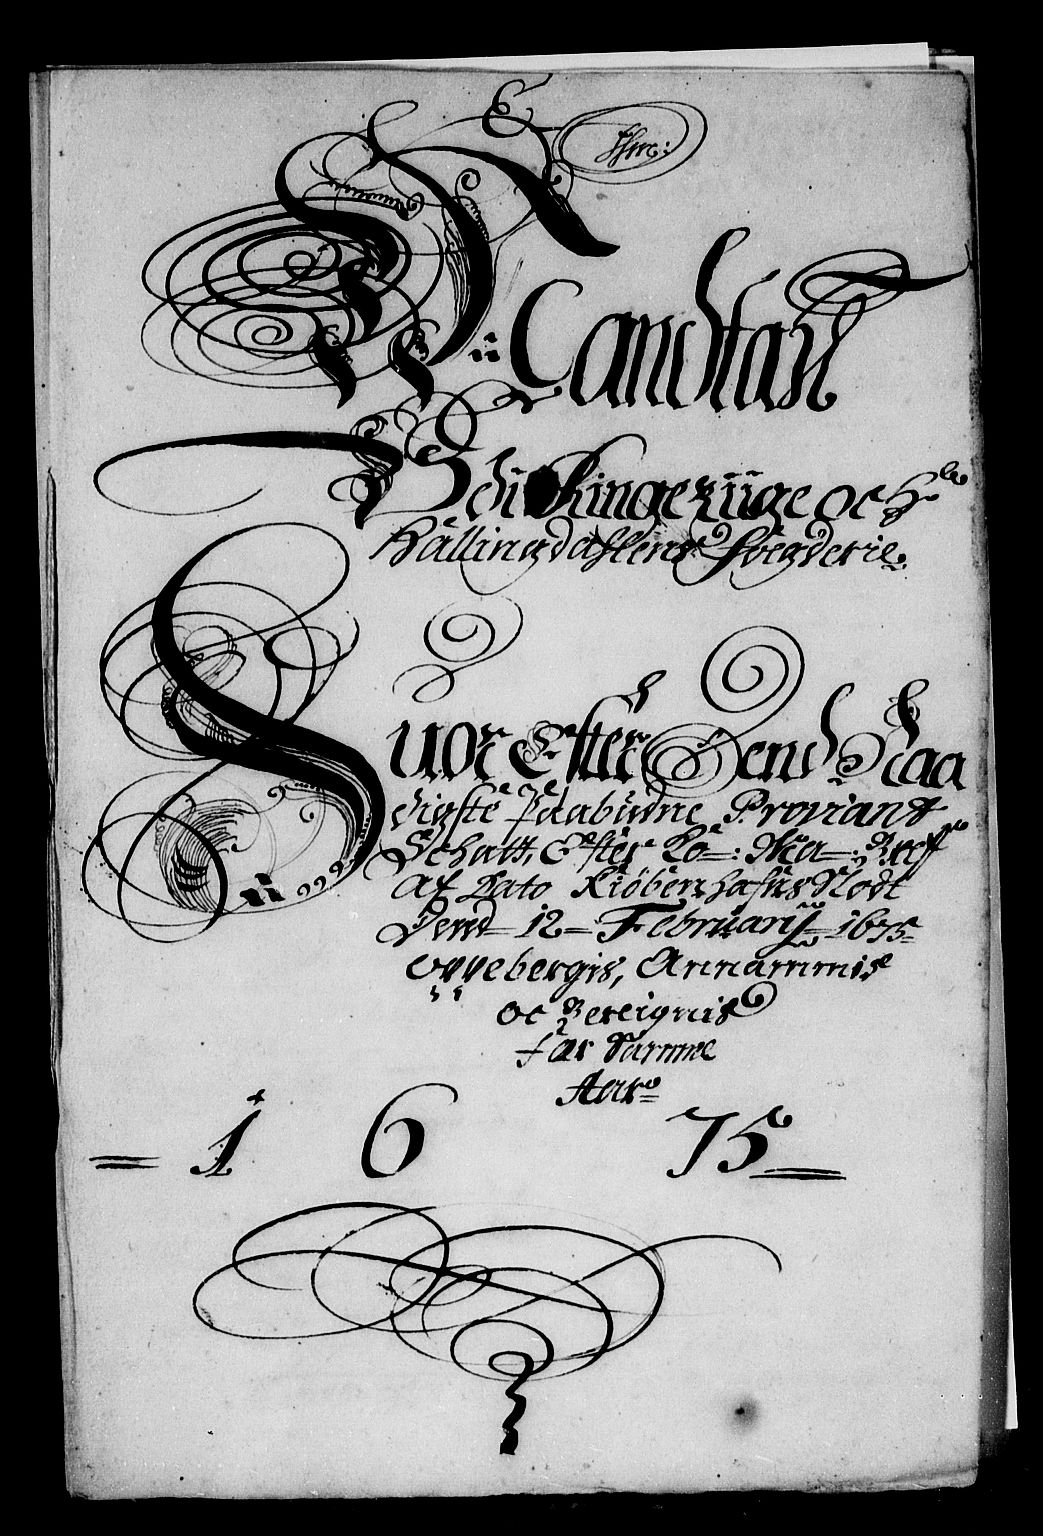 Mandtall
Offuer Ringeriige oc
Hallingdahlens Fögderie.
Huor Effter Dend Naa
digste Paabudne Proviant
Schatt, Effter Ko: Ma: Breff
af Dato Kiöbenhafns Slodt
Dend 12 Februarij 1675
oppebergis, Annammis
oc Bereignis
for Samme
Aar
1675